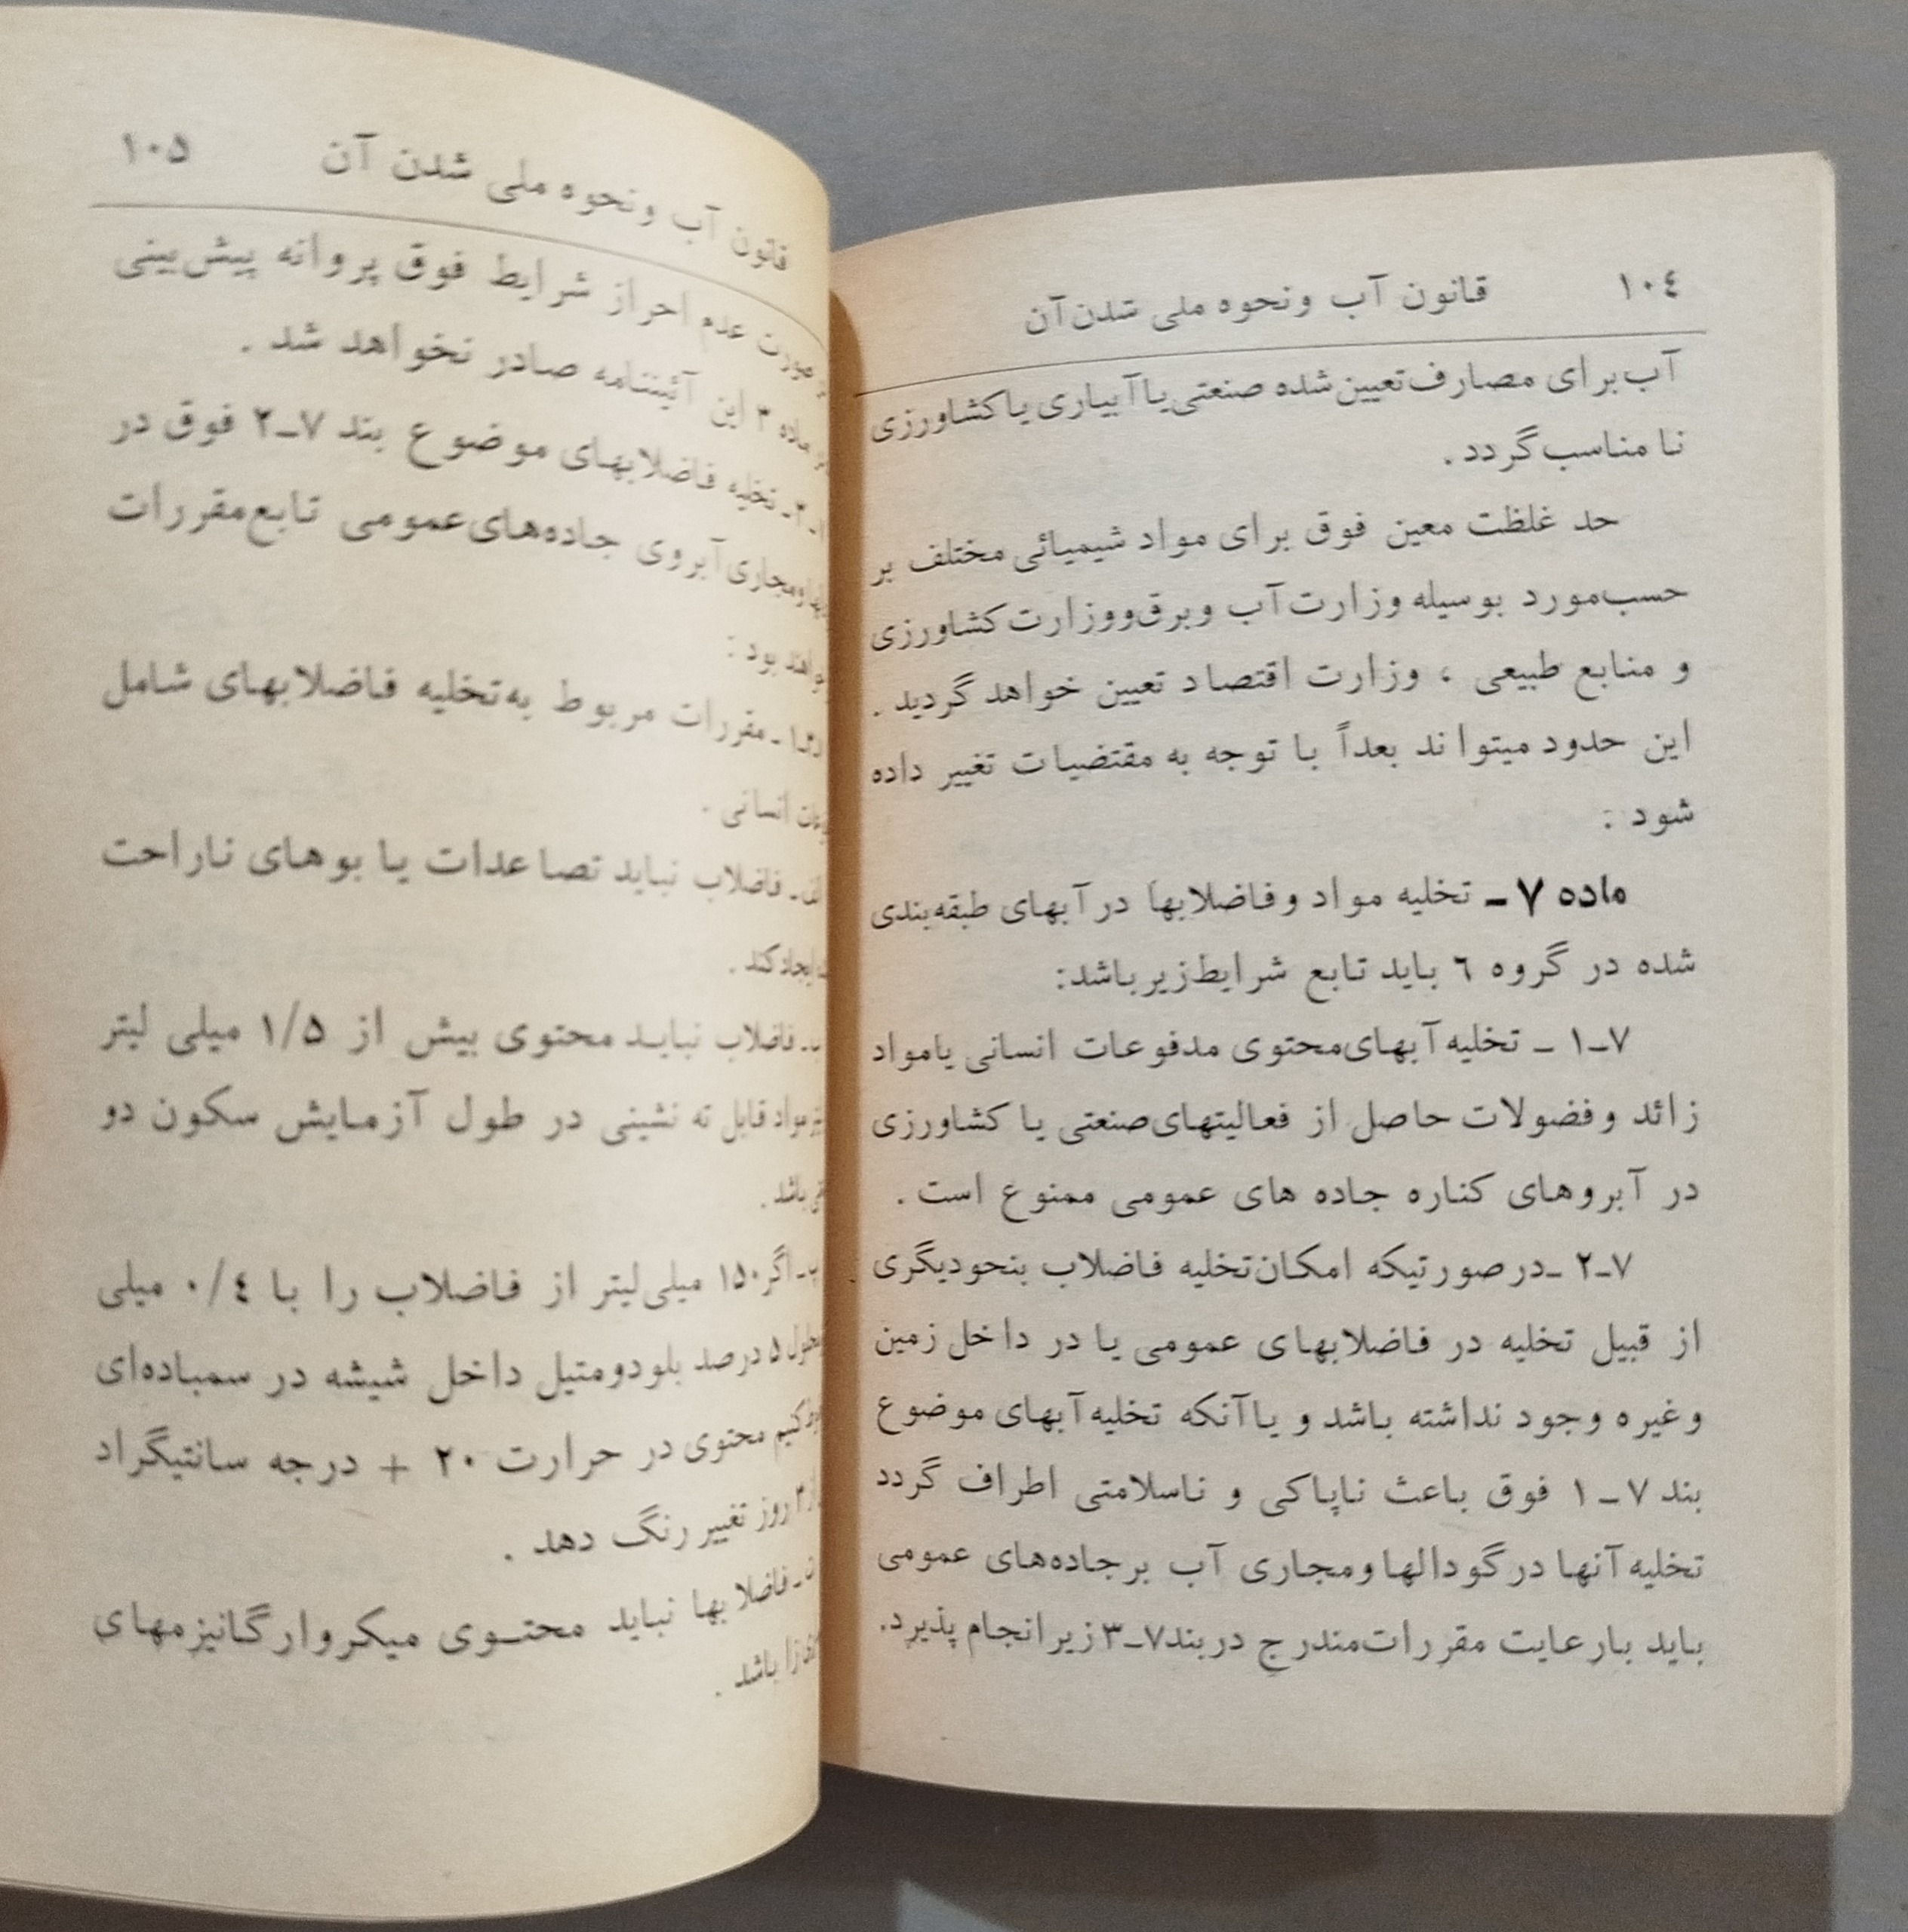 ۱۰٤ قانون آب ونحوه ملی شدن آن
آب برای مصارف تعیین شده صنعتی یا آبیاری یا کشاورزی
نا مناسب گردد .
حد غلظت معین فوق برای مواد شیمیائی مختلف بر
حسب مورد بوسیله وزارت آب وبرق ووزارت کشاورزی
و منابع طبیعی ، وزارت اقتصاد تعیین خواهد گردید .
این حدود میتواند بعداً با توجه به مقتضیات تغییر داده
شود :
ماده ۷ ـ تخلیه مواد وفاضلابها در آبهای طبقه‌بندی
شده در گروه ٦ باید تابع شرایط زیر باشد:
۷ـ۱ ـ تخلیه آبهای محتوی مدفوعات انسانی یا مواد
زائد وفضولات حاصل از فعالیتهای صنعتی یا کشاورزی
در آبروهای کناره جاده های عمومی ممنوع است .
۷ـ۲ ـ در صورتیکه امکان تخلیه فاضلاب بنحو دیگری
از قبیل تخلیه در فاضلابهای عمومی یا در داخل زمین
وغیره وجود نداشته باشد و یا آنکه تخلیه آبهای موضوع
بند ۷ ـ ۱ فوق باعث ناپاکی و ناسلامتی اطراف گردد
تخلیه آنها در گودالها ومجاری آب بر جاده‌های عمومی
باید با رعایت مقررات مندرج در بند ۷ـ۳ زیر انجام پذیرد.
قانون آب ونحوه ملی شدن آن ۱۰۵
صورت عدم احراز شرایط فوق پروانه پیش‌بینی
ماده ۳ این آئیننامه صادر نخواهد شد .
تخلیه فاضلابهای موضوع بند ۷ـ۲ فوق در
ومجاری آبروی جاده‌های عمومی تابع مقررات
بود :
مقررات مربوط به تخلیه فاضلابهای شامل
انسانی .
فاضلاب نباید تصاعدات یا بوهای ناراحت
ایجاد کند .
فاضلاب نباید محتوی بیش از ۱/۵ میلی لیتر
مواد قابل ته نشینی در طول آزمایش سکون دو
باشد .
اگر ۱۵۰ میلی‌لیتر از فاضلاب را با ۰/٤ میلی
۵ درصد بلودومتیل داخل شیشه در سمباده‌ای
کنیم محتوی در حرارت ۲۰ + درجه سانتیگراد
۳ روز تغییر رنگ دهد .
فاضلابها نباید محتوی میکروارگانیزمهای
باشد .